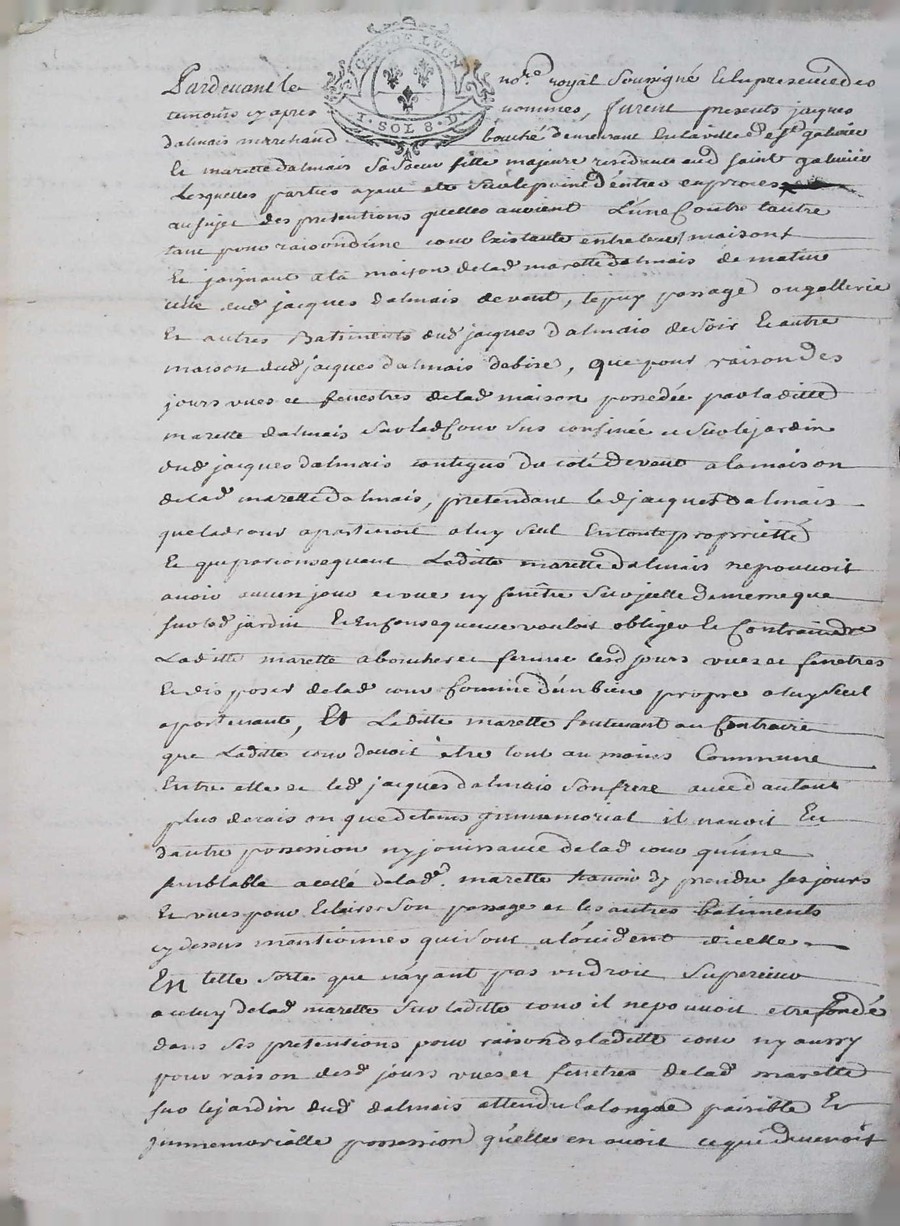 Pardevant le no.re royal soussigné et en presence des
temoins cy apres nommés, furent presents jacques
dalmais marchand bouché demeurant en la ville de st galmier
GEN. DE LYON
1. SOL 8. D.
Et marette dalmais sa soeur fille majeure residente aud saint galmier
Lesquelles parties ayant eté sur le point d'entrer en proces
au sujet des pretentions quelles avoient L'une Contre L'autre
tant pour raison d'une cour Existante entre leurs maisons
Et joignant a la maison de lad marette dalmais de matin
celle dud jacques dalmais de vent, le puy passage ou gallerie
Et autres Batiments dud jacques dalmais de soir Et autre
maison dud jacques dalmais de bise, que pour raison des
jours vues et fenestres de lad maison possedée par laditte
marette dalmais sur lad Cour sus confinée et sur le jardin
dud jacques dalmais contigus du coté de vent a la maison
de lad marette dalmais, pretendant led jacques dalmais
que lad cour apartenoit a luy seul En toute proprieté
Et que par consequent Laditte marette dalmais ne pouvoit
avoir aucun jour et vue ny fenêtre sur jcelle de meme que
sur led jardin Et En Consequence vouloit obliger Et Contraindre
Laditte marette a boucher et fermer lesd jours vues et fenetres
Et disposer de lad cour Comme d'un bien propre a luy seul
apartenant, Et Laditte marette soutenant au Contraire
que Laditte cour devoit être tout au moins Commune
Entre elle et led jacques dalmais son frere avec d'autant
plus de raison que de tems jmmemorial il n'avoit Eu
d'autre possession ny jouissance de lad cour qu'une
semblable a celle de lad.e marette scavoir d'y prendre ses jours
Et vues pour Eclairer son passage et les autres batiments
cy dessus mentionnes qui sont a l'occident d'icelle
En telle sorte que n'ayant pas un droit superieur
a celuy de lad marette sur laditte cour il ne pouvoit etre fondé
dans ses pretentions pour raison de laditte cour ny aussy
pour raison desd jours vues et fenetres de lad marette
sur le jardin dud dalmais attendu la longue paisible Et
jmmemorialle possession qu'elle en avoit ce qui devenoit